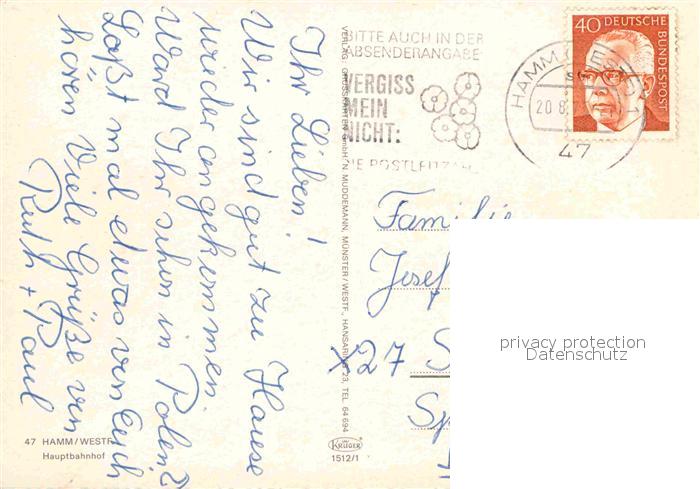 Ihr Lieben!
Wir sind gut zu Hause
wieder angekommen.
Ward Ihr schon in Polen?
Laßt mal etwas von Euch
hören Viele Grüße von
Ruth + Paul
47 HAMM/WESTF.
Hauptbahnhof
VERLAG: GROSSKARTEN GmbH, N. MUDDEMANN, MÜNSTER/WESTF., HANSARING 23, TEL. 64 694
KRÜGER
1512/1
BITTE AUCH IN DER
ABSENDERANGABE
VERGISS
MEIN
NICHT:
DIE POSTLEITZAHL
HAMM (WESTF) 1
20.8.
47
40 DEUTSCHE
BUNDESPOST
Familie
Josef
x27 S
Sp
privacy protection
Datenschutz